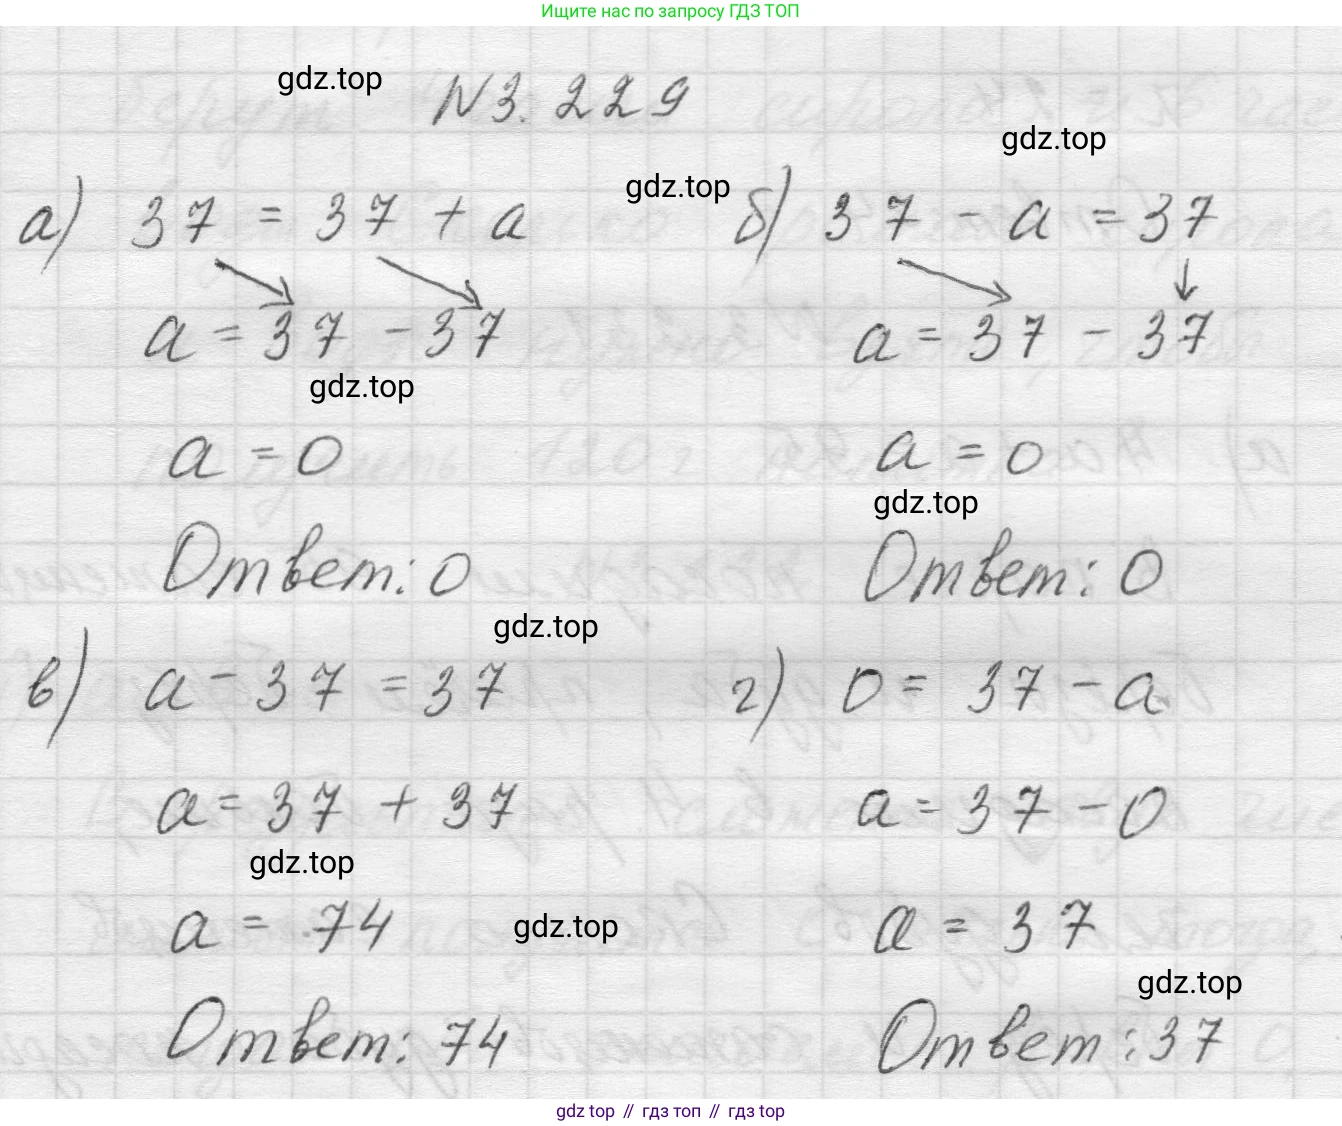 Ищите нас по запросу ГДЗ ТОП
gdz.top
N3.229
gdz.top
gdz.top
а) 37 = 37 + a
a = 37 - 37
gdz.top
a = 0
Ответ: 0
б) 37 - a = 37
a = 37 - 37
a = 0
gdz.top
Ответ: 0
gdz.top
в) a - 37 = 37
a = 37 + 37
gdz.top
a = 74
gdz.top
Ответ: 74
г) 0 = 37 - a
a = 37 - 0
a = 37
gdz.top
Ответ: 37
gdz top // гдз топ // гдз top